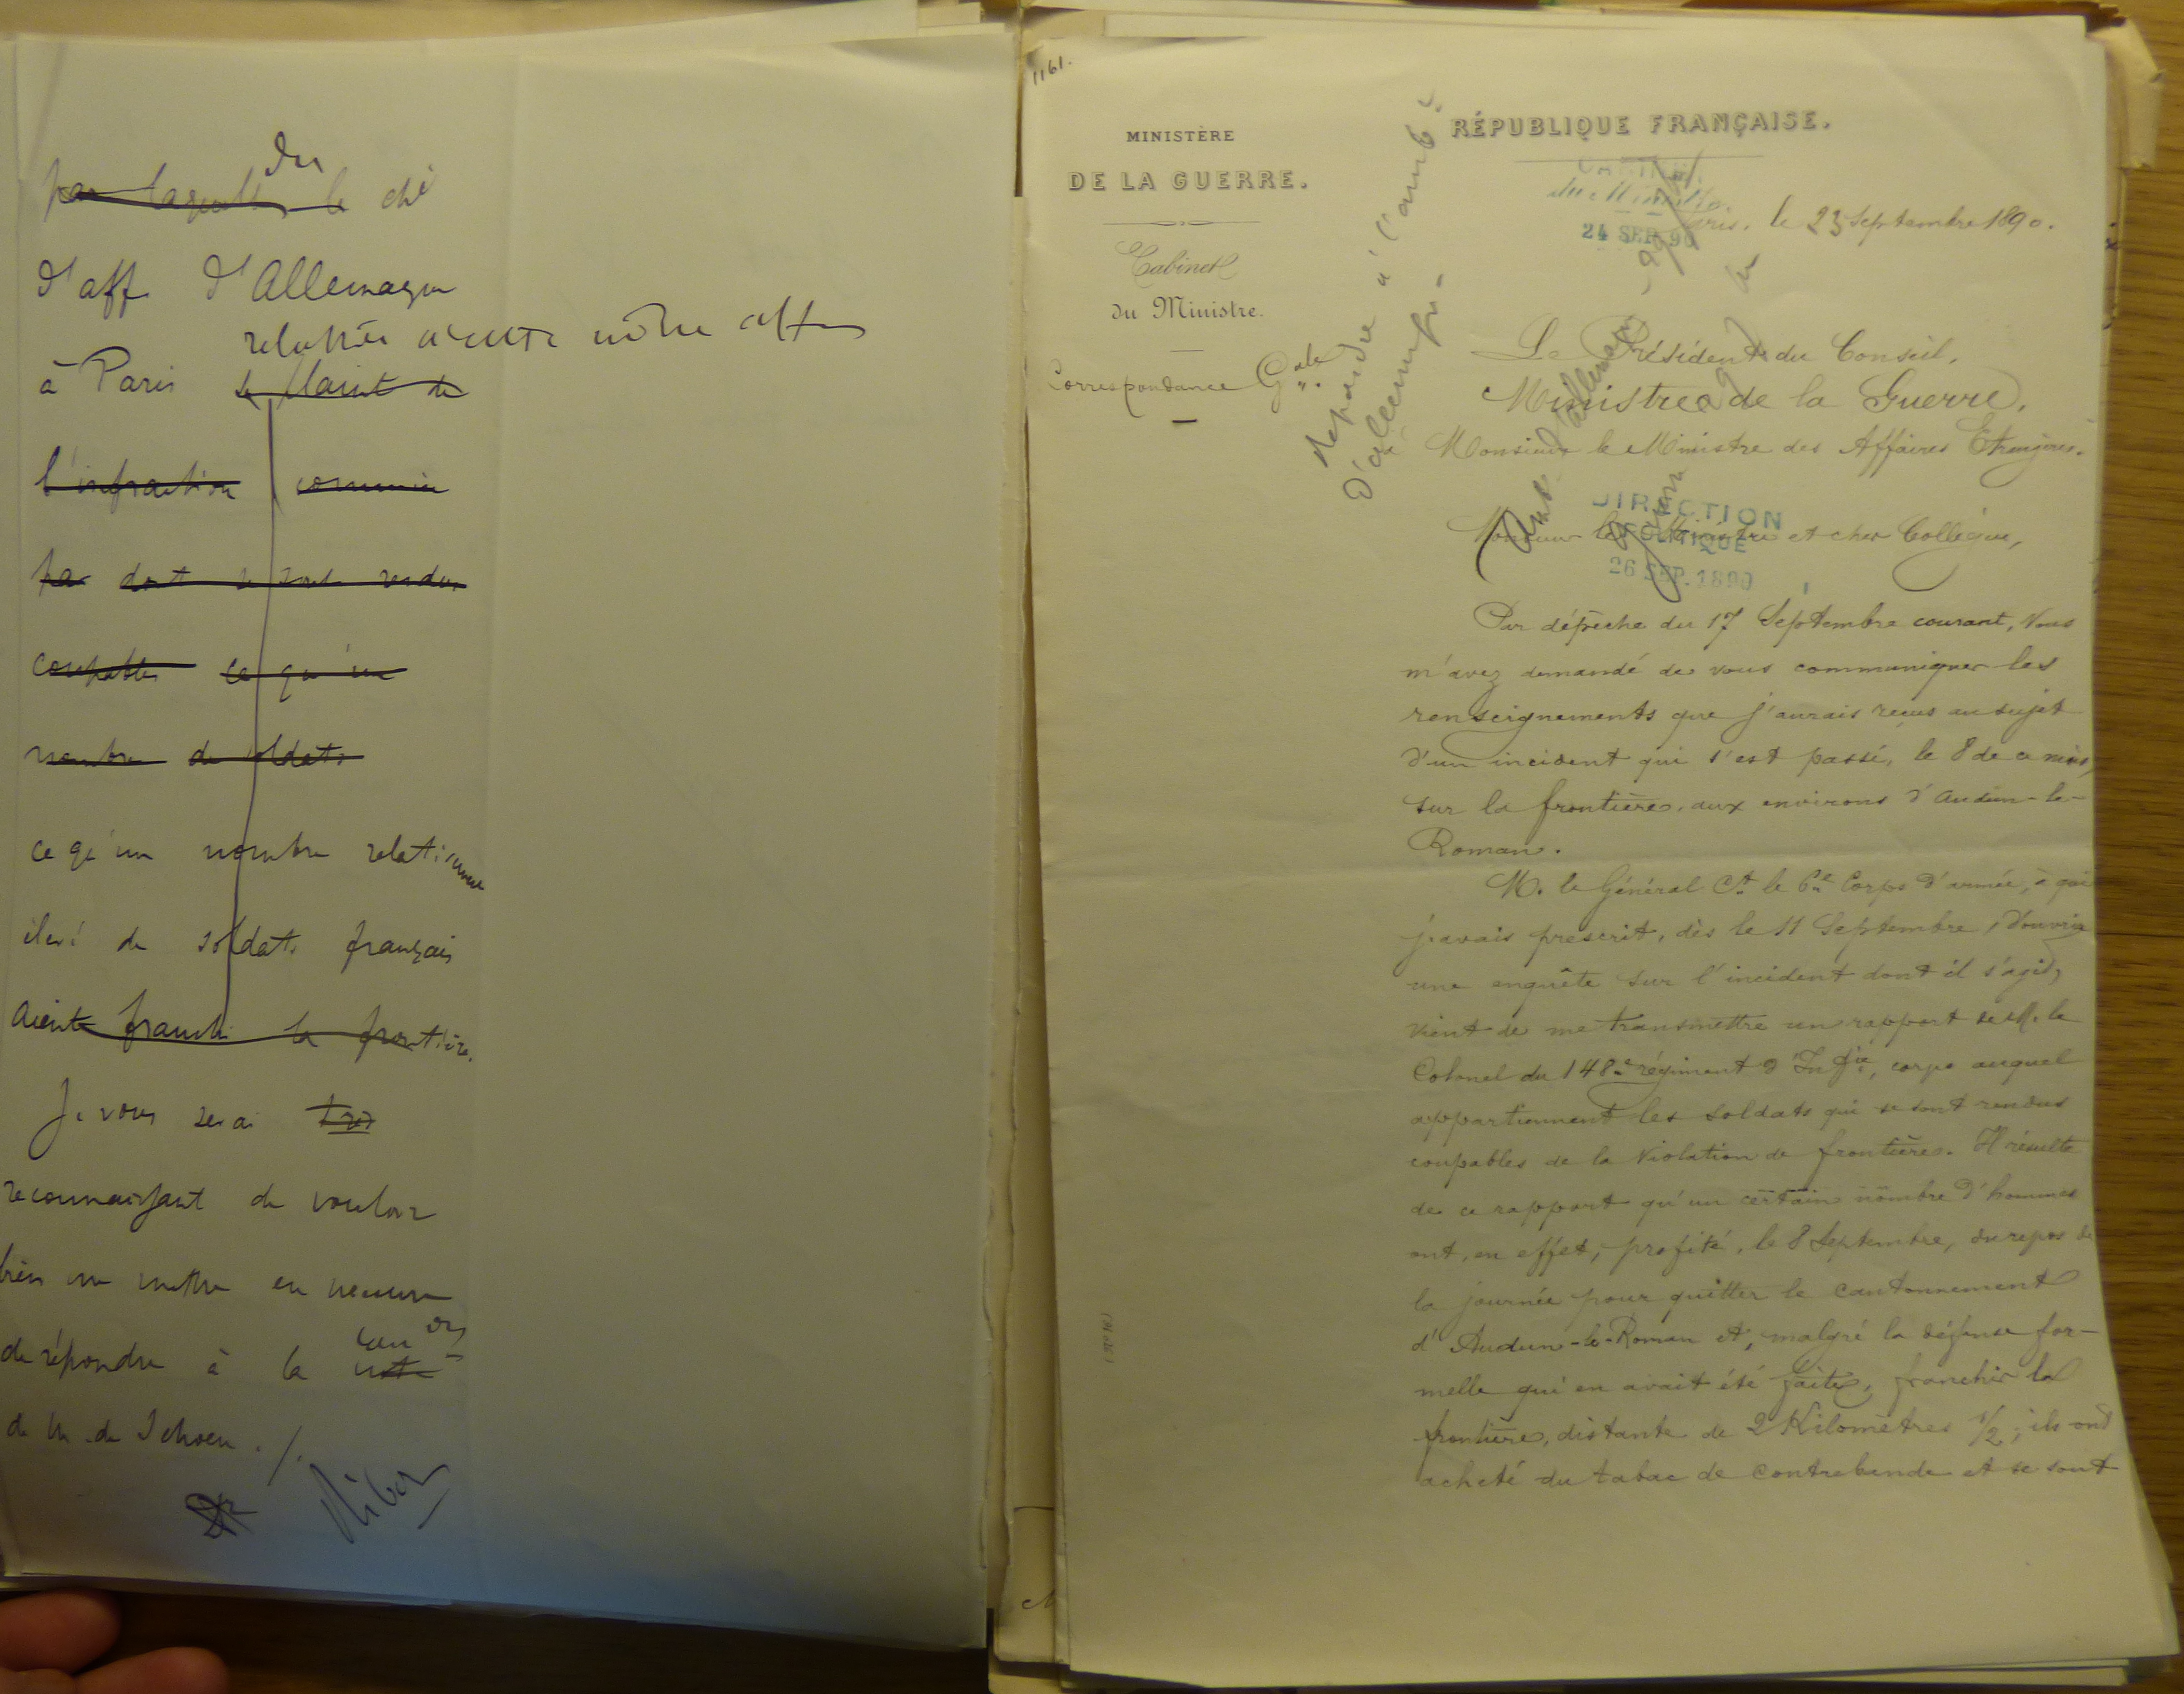 du
par laquelle le ché
d'aff. d'Allemagne
relative à cette même aff
à Paris se plaint de
l'infraction commise
par dont se sont rendus
coupables ce qu'un
nombre de soldats
ce qu'un nombre relativement
élevé de soldats français
aient franchi la frontière.
Je vous serai très
reconnaissant de vouloir
bien me mettre en mesure
de répondre à la
note
de M. de Schoen ./.
Ribot
1161.
MINISTÈRE
DE LA GUERRE.
Cabinet
du Ministre.
Correspondance Gale
répondre à l'amb.
d'allemagne
RÉPUBLIQUE FRANÇAISE.
CABINET
du Ministre
24 SEP. 90
Paris, le 23 Septembre 1890.
Le Président du Conseil,
Ministre de la Guerre,
Monsieur le Ministre des Affaires Etrangères.
DIRECTION
POLITIQUE
26 SEP. 1890
Monsieur le Ministre et cher Collègue,
Par dépêche du 17 Septembre courant, Vous
m'avez demandé de vous communiquer les
renseignements que j'aurais reçus au sujet
d'un incident qui s'est passé, le 8 de ce mois,
sur la frontière, aux environs d'Audun-le-
Roman.
M. le Général Ct le 6e Corps d'armée, à qui
j'avais prescrit, dès le 11 Septembre, d'ouvrir
une enquête sur l'incident dont il s'agit,
vient de me transmettre un rapport de M. le
Colonel du 148e régiment d'Infie, corps auquel
appartiennent les soldats qui se sont rendus
coupables de la violation de frontière. Il résulte
de ce rapport qu'un certain nombre d'hommes
ont, en effet, profité, le 8 Septembre, du repos de
la journée pour quitter le cantonnement
d'Audun-le-Roman et, malgré la défense for-
melle qui en avait été faite, franchir la
frontière, distante de 2 Kilomètres 1/2; ils ont
acheté du tabac de contrebande et se sont